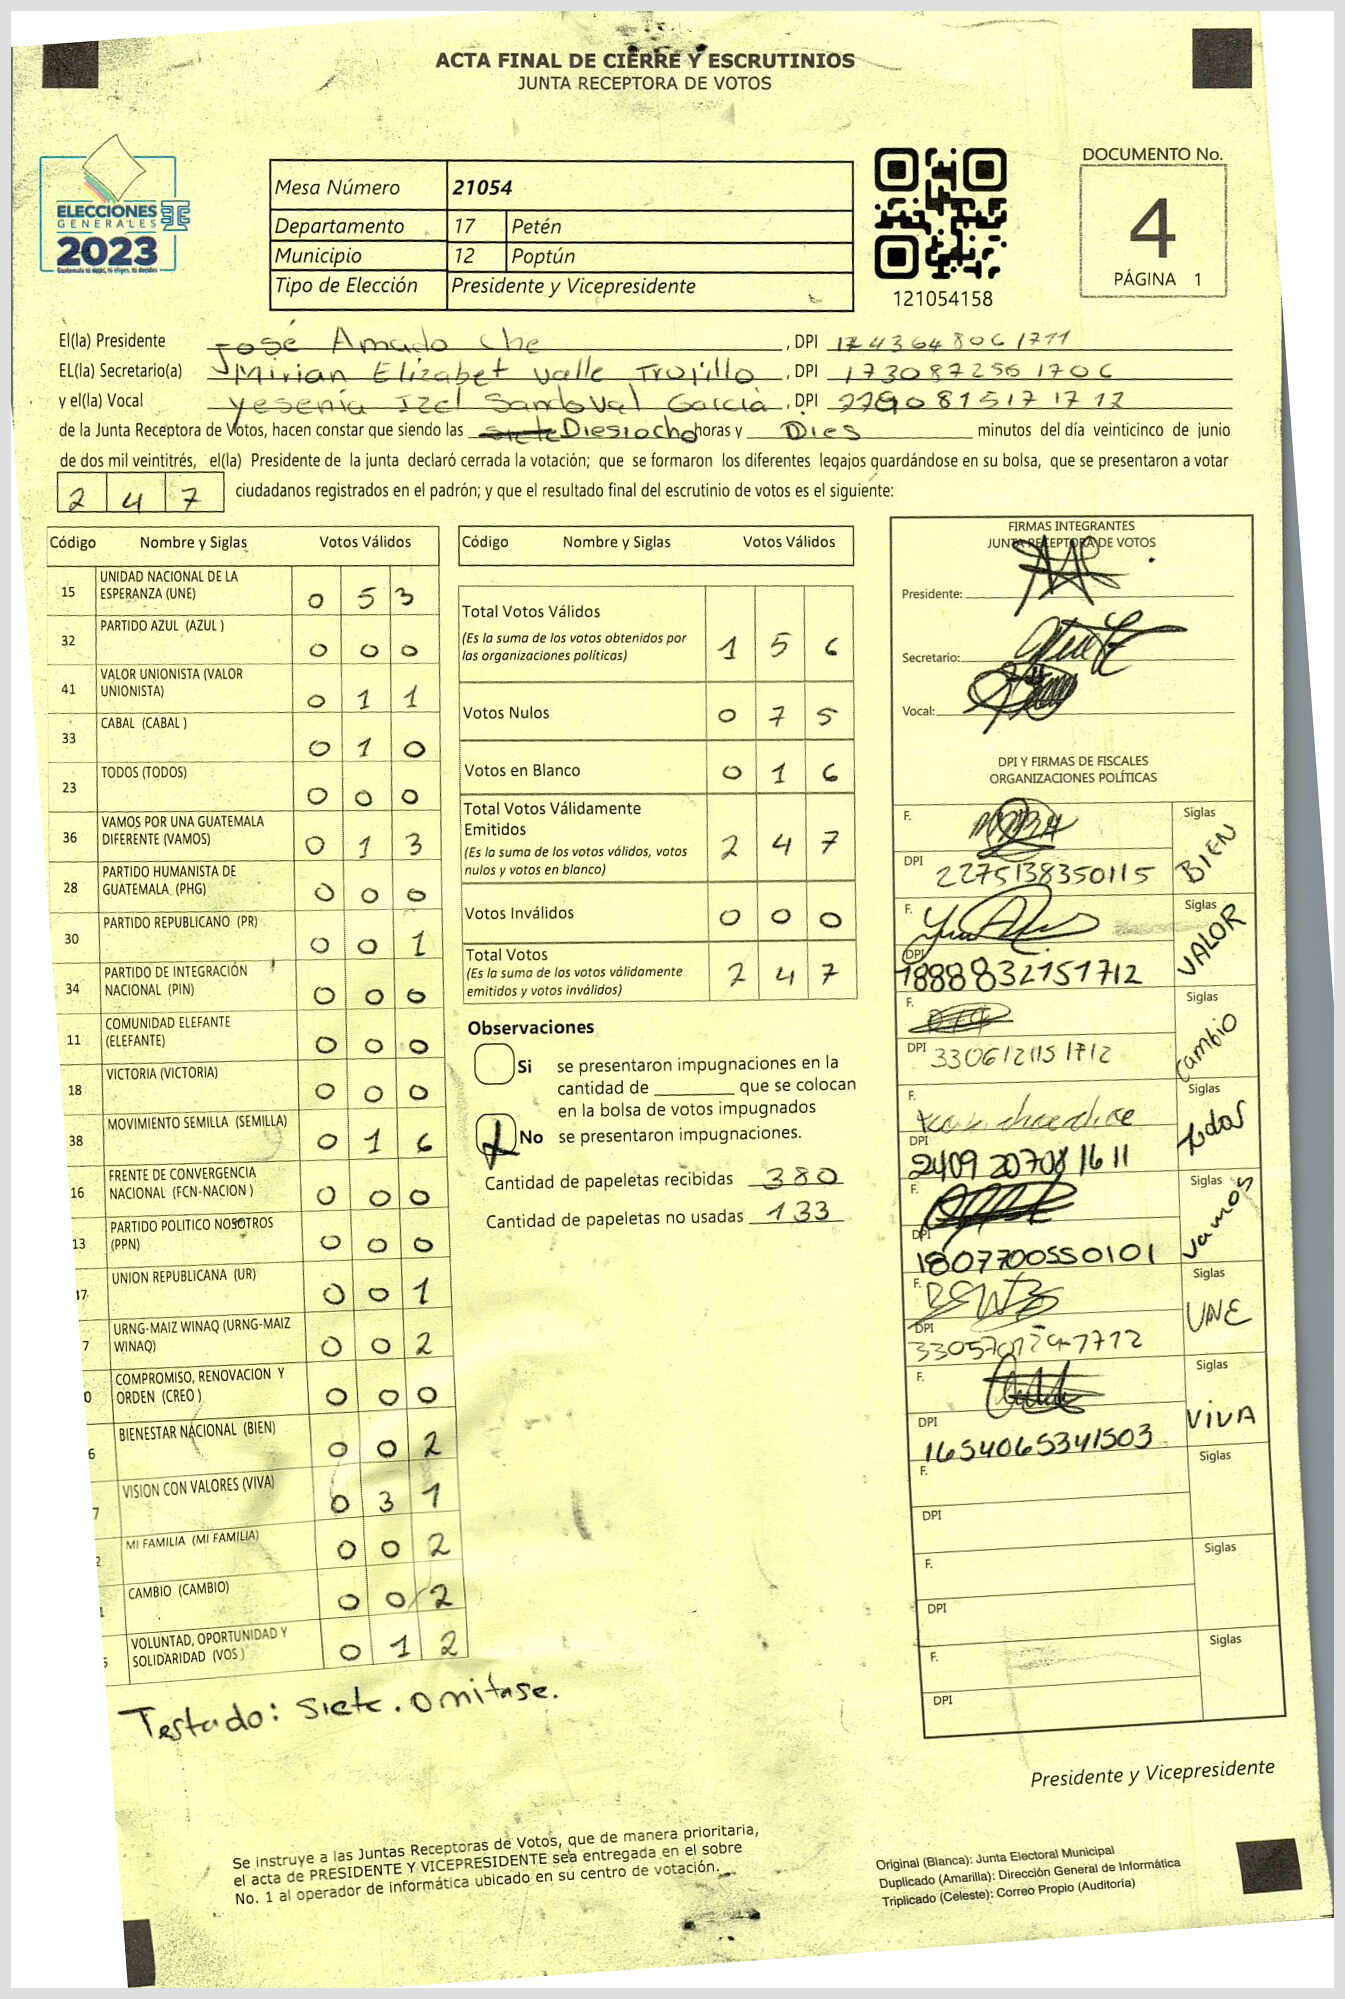 ACTA FINAL DE CIERRE Y ESCRUTINIOS
JUNTA RECEPTORA DE VOTOS
ELECCIONES
GENERALES
2023
Mesa Número 21054
Departamento 17 Petén
Municipio 12 Poptún
Tipo de Elección Presidente y Vicepresidente
121054158
DOCUMENTO No.
4
PÁGINA 1
El(la) Presidente José Amado Che , DPI
EL(la) Secretario(a) Mirian Elizabet Valle Trujillo , DPI 1730872561706
y el(la) Vocal Yesenia Izel Sandoval Garcia , DPI
de la Junta Receptora de Votos, hacen constar que siendo las siete Diesiocho horas y Dies minutos del día veinticinco de junio
de dos mil veintitrés, el(la) Presidente de la junta declaró cerrada la votación; que se formaron los diferentes legajos guardándose en su bolsa, que se presentaron a votar
2 4 7 ciudadanos registrados en el padrón; y que el resultado final del escrutinio de votos es el siguiente:
Código Nombre y Siglas Votos Válidos
15 UNIDAD NACIONAL DE LA ESPERANZA (UNE) 0 5 3
32 PARTIDO AZUL (AZUL ) 0 0 0
41 VALOR UNIONISTA (VALOR UNIONISTA) 0 1 1
33 CABAL (CABAL ) 0 1 0
23 TODOS (TODOS) 0 0 0
36 VAMOS POR UNA GUATEMALA DIFERENTE (VAMOS) 0 1 3
28 PARTIDO HUMANISTA DE GUATEMALA (PHG) 0 0 0
30 PARTIDO REPUBLICANO (PR) 0 0 1
34 PARTIDO DE INTEGRACIÓN NACIONAL (PIN) 0 0 0
11 COMUNIDAD ELEFANTE (ELEFANTE) 0 0 0
18 VICTORIA (VICTORIA) 0 0 0
38 MOVIMIENTO SEMILLA (SEMILLA) 0 1 6
16 FRENTE DE CONVERGENCIA NACIONAL (FCN-NACION ) 0 0 0
13 PARTIDO POLITICO NOSOTROS (PPN) 0 0 0
7 UNION REPUBLICANA (UR) 0 0 1
7 URNG-MAIZ WINAQ (URNG-MAIZ WINAQ) 0 0 2
0 COMPROMISO, RENOVACION Y ORDEN (CREO ) 0 0 0
6 BIENESTAR NACIONAL (BIEN) 0 0 2
7 VISION CON VALORES (VIVA) 0 3 1
2 MI FAMILIA (MI FAMILIA) 0 0 2
1 CAMBIO (CAMBIO) 0 0 2
5 VOLUNTAD, OPORTUNIDAD Y SOLIDARIDAD (VOS ) 0 1 2
Testado: siete. omitase.
Código Nombre y Siglas Votos Válidos
Total Votos Válidos
(Es la suma de los votos obtenidos por
las organizaciones políticas) 1 5 6
Votos Nulos 0 7 5
Votos en Blanco 0 1 6
Total Votos Válidamente
Emitidos
(Es la suma de los votos válidos, votos
nulos y votos en blanco) 2 4 7
Votos Inválidos 0 0 0
Total Votos
(Es la suma de los votos válidamente
emitidos y votos inválidos) 2 4 7
Observaciones
Si se presentaron impugnaciones en la
cantidad de ________ que se colocan
en la bolsa de votos impugnados
No se presentaron impugnaciones.
Cantidad de papeletas recibidas 380
Cantidad de papeletas no usadas 133
FIRMAS INTEGRANTES
JUNTA RECEPTORA DE VOTOS
Presidente:
Secretario:
Vocal:
DPI Y FIRMAS DE FISCALES
ORGANIZACIONES POLÍTICAS
F. Siglas BIEN
DPI 2275138350115
F. Siglas VALOR
DPI 1888832151712
F. Siglas Cambio
DPI 3306121151712
F. Siglas todos
DPI 2409 20708 1611
F. Siglas vamos
DPI 1807700550101
F. Siglas UNE
DPI
F. Siglas VIVA
DPI 1654065341503
F. Siglas
DPI
F. Siglas
DPI
F. Siglas
DPI
Presidente y Vicepresidente
Se instruye a las Juntas Receptoras de Votos, que de manera prioritaria,
el acta de PRESIDENTE Y VICEPRESIDENTE sea entregada en el sobre
No. 1 al operador de informática ubicado en su centro de votación.
Original (Blanca): Junta Electoral Municipal
Duplicado (Amarilla): Dirección General de Informática
Triplicado (Celeste): Correo Propio (Auditoría)